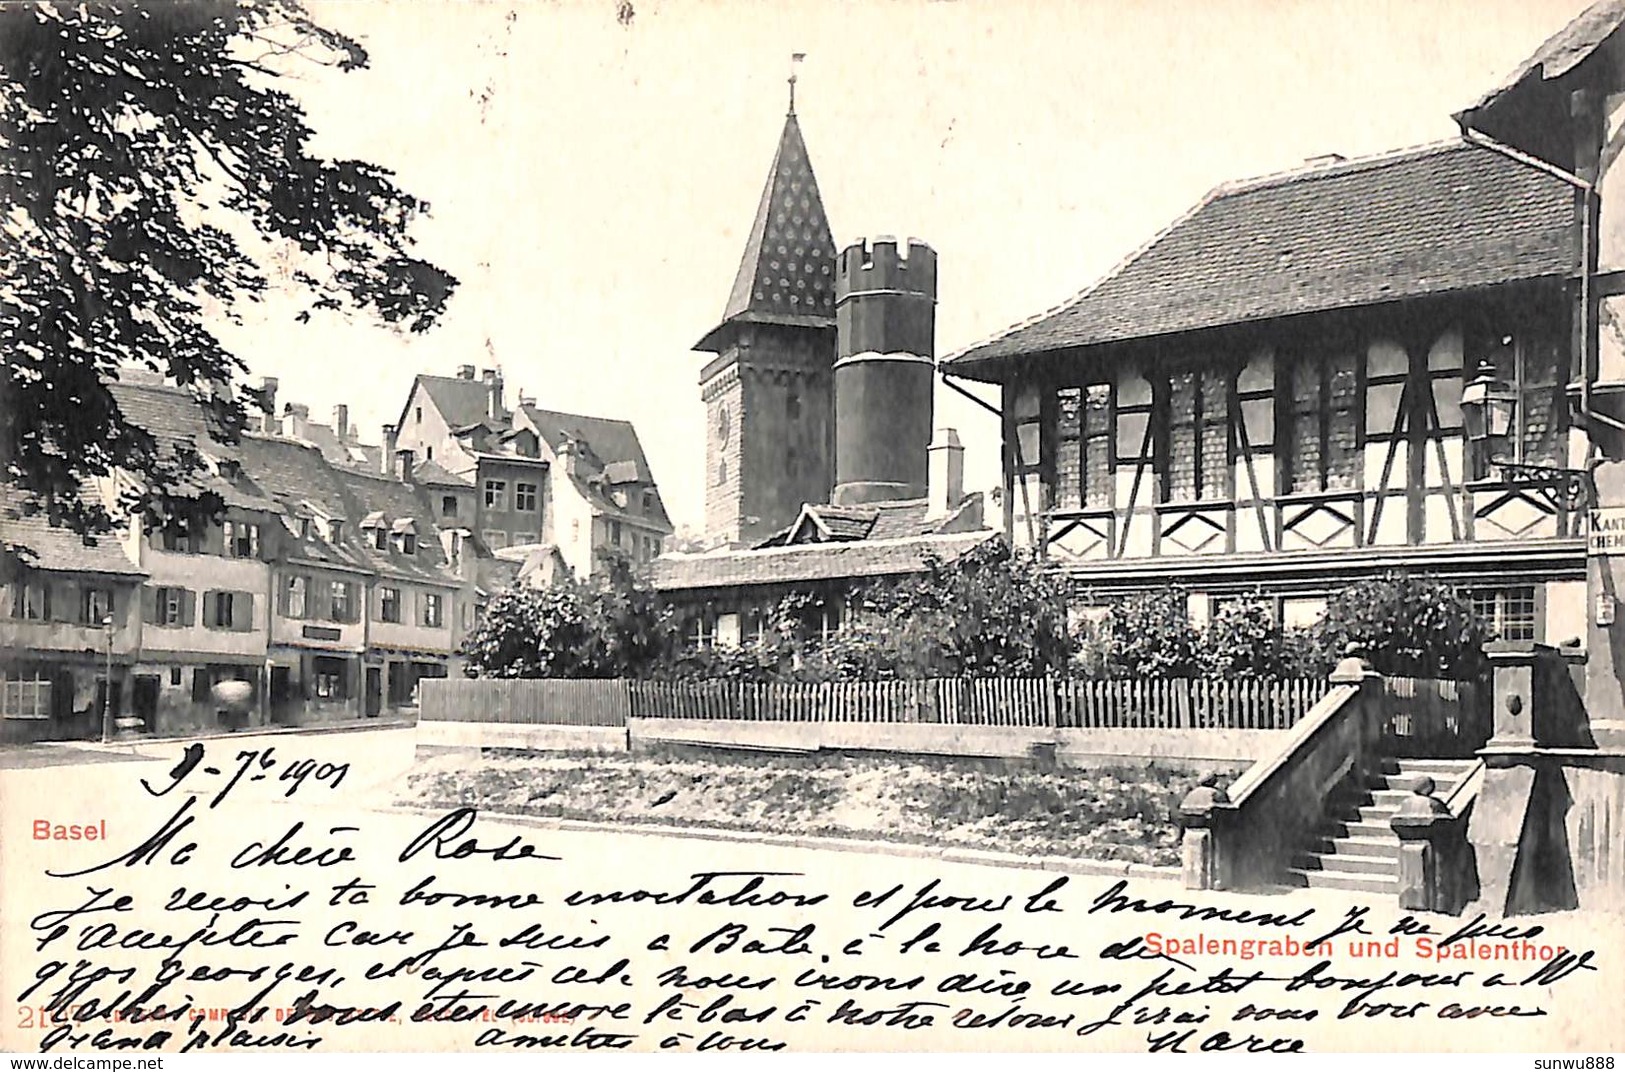 KANT
CHEM
9 - 7b 1901
Basel
Ma chère Rose
Je reçois ta bonne invitation et pour le moment je ne puis
t'accepter car je suis a Bâle, à la noce de
Spalengraben und Spalenthor
gros Georges, et après cela nous irons dire un petit bonjour a
Mathis, si vous êtes encore là bas à notre retour j'irai vous voir avec
grand plaisir amitiés à tous Marie
delcampe.net
sunwu888